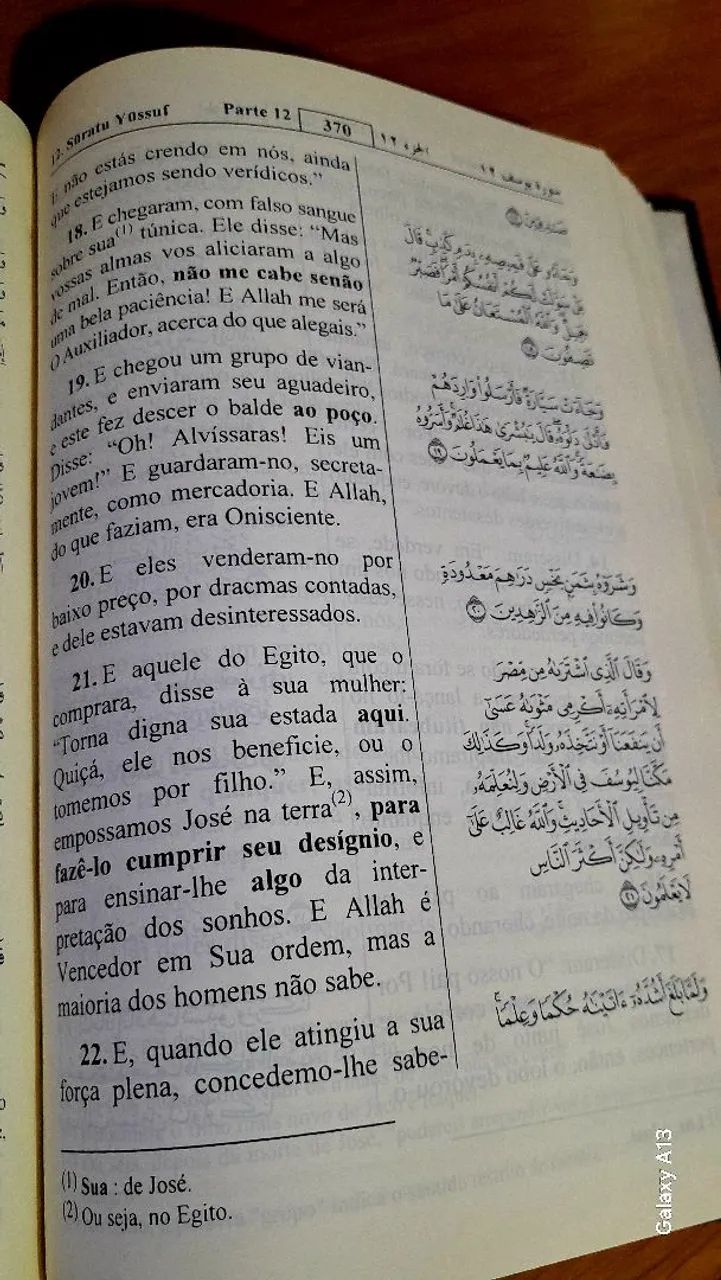 12- Sūratu Yūssuf Parte 12 370 الجزء ١٢ سورة يوسف ١٢
E não estás crendo em nós, ainda
que estejamos sendo verídicos.”
18. E chegaram, com falso sangue
sobre sua(1) túnica. Ele disse: “Mas
vossas almas vos aliciaram a algo
de mal. Então, não me cabe senão
uma bela paciência! E Allah me será
O Auxiliador, acerca do que alegais.”
19. E chegou um grupo de vian-
dantes, e enviaram seu aguadeiro,
e este fez descer o balde ao poço.
Disse: “Oh! Alvíssaras! Eis um
jovem!” E guardaram-no, secreta-
mente, como mercadoria. E Allah,
do que faziam, era Onisciente.
20. E eles venderam-no por
baixo preço, por dracmas contadas,
e dele estavam desinteressados.
21. E aquele do Egito, que o
comprara, disse à sua mulher:
“Torna digna sua estada aqui.
Quiçá, ele nos beneficie, ou o
tomemos por filho.” E, assim,
empossamos José na terra(2), para
fazê-lo cumprir seu desígnio, e
para ensinar-lhe algo da inter-
pretação dos sonhos. E Allah é
Vencedor em Sua ordem, mas a
maioria dos homens não sabe.
22. E, quando ele atingiu a sua
força plena, concedemo-lhe sabe-
صَٰدِقِينَ ١٧
وَجَآءُو عَلَىٰ قَمِيصِهِۦ بِدَمٍ كَذِبٍ قَالَ
بَلْ سَوَّلَتْ لَكُمْ أَنفُسُكُمْ أَمْرًا فَصَبْرٌ
جَمِيلٌ وَٱللَّهُ ٱلْمُسْتَعَانُ عَلَىٰ مَا
تَصِفُونَ ١٨
وَجَآءَتْ سَيَّارَةٌ فَأَرْسَلُوا۟ وَارِدَهُمْ
فَأَدْلَىٰ دَلْوَهُۥ قَالَ يَٰبُشْرَىٰ هَٰذَا غُلَٰمٌ وَأَسَرُّوهُ
بِضَٰعَةً وَٱللَّهُ عَلِيمٌۢ بِمَا يَعْمَلُونَ ١٩
وَشَرَوْهُ بِثَمَنٍۭ بَخْسٍ دَرَٰهِمَ مَعْدُودَةٍ
وَكَانُوا۟ فِيهِ مِنَ ٱلزَّٰهِدِينَ ٢٠
وَقَالَ ٱلَّذِى ٱشْتَرَىٰهُ مِن مِّصْرَ
لِٱمْرَأَتِهِۦٓ أَكْرِمِى مَثْوَىٰهُ عَسَىٰٓ
أَن يَنفَعَنَآ أَوْ نَتَّخِذَهُۥ وَلَدًا وَكَذَٰلِكَ
مَكَّنَّا لِيُوسُفَ فِى ٱلْأَرْضِ وَلِنُعَلِّمَهُۥ
مِن تَأْوِيلِ ٱلْأَحَادِيثِ وَٱللَّهُ غَالِبٌ عَلَىٰٓ
أَمْرِهِۦ وَلَٰكِنَّ أَكْثَرَ ٱلنَّاسِ
لَا يَعْلَمُونَ ٢١
وَلَمَّا بَلَغَ أَشُدَّهُۥٓ ءَاتَيْنَٰهُ حُكْمًا وَعِلْمًا
(1) Sua : de José.
(2) Ou seja, no Egito.
Galaxy A13